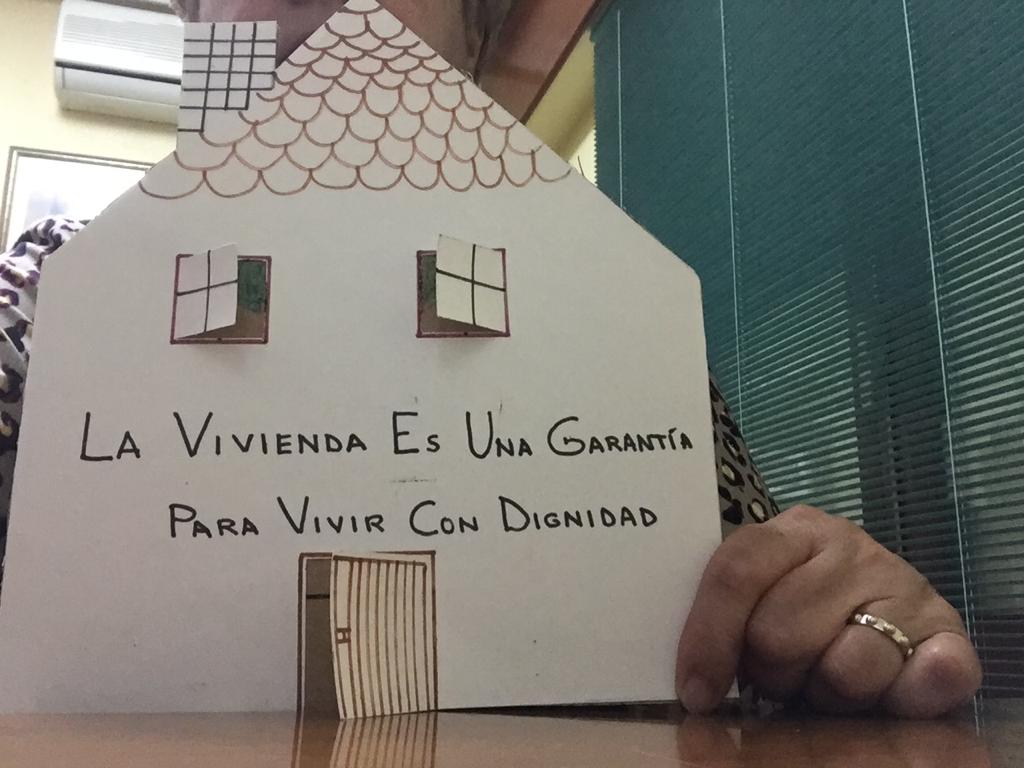 La Vivienda Es Una Garantía
Para Vivir Con Dignidad